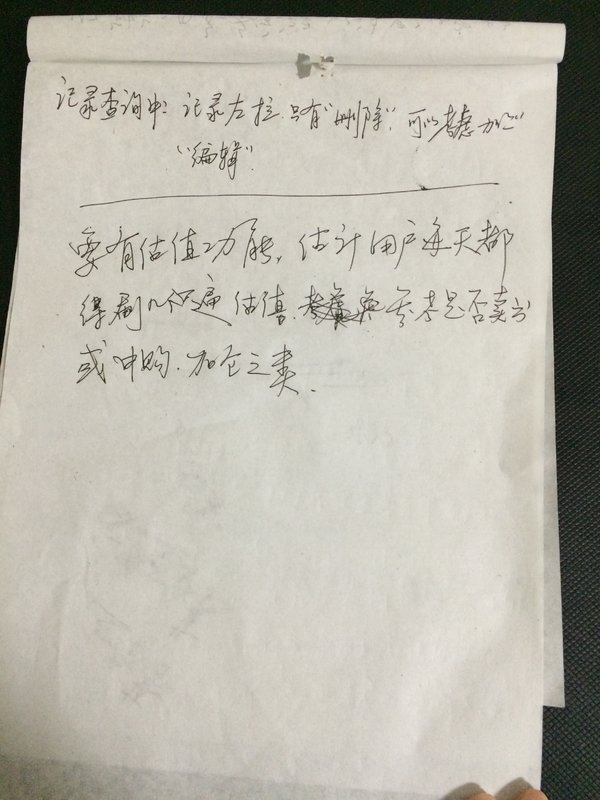 记录查询中：记录左拉，只有“删除”，可以考虑加上
“编辑”
要有估值功能，估计用户每天都
得刷几遍估值，参考是否卖出
或申购、加仓之类.